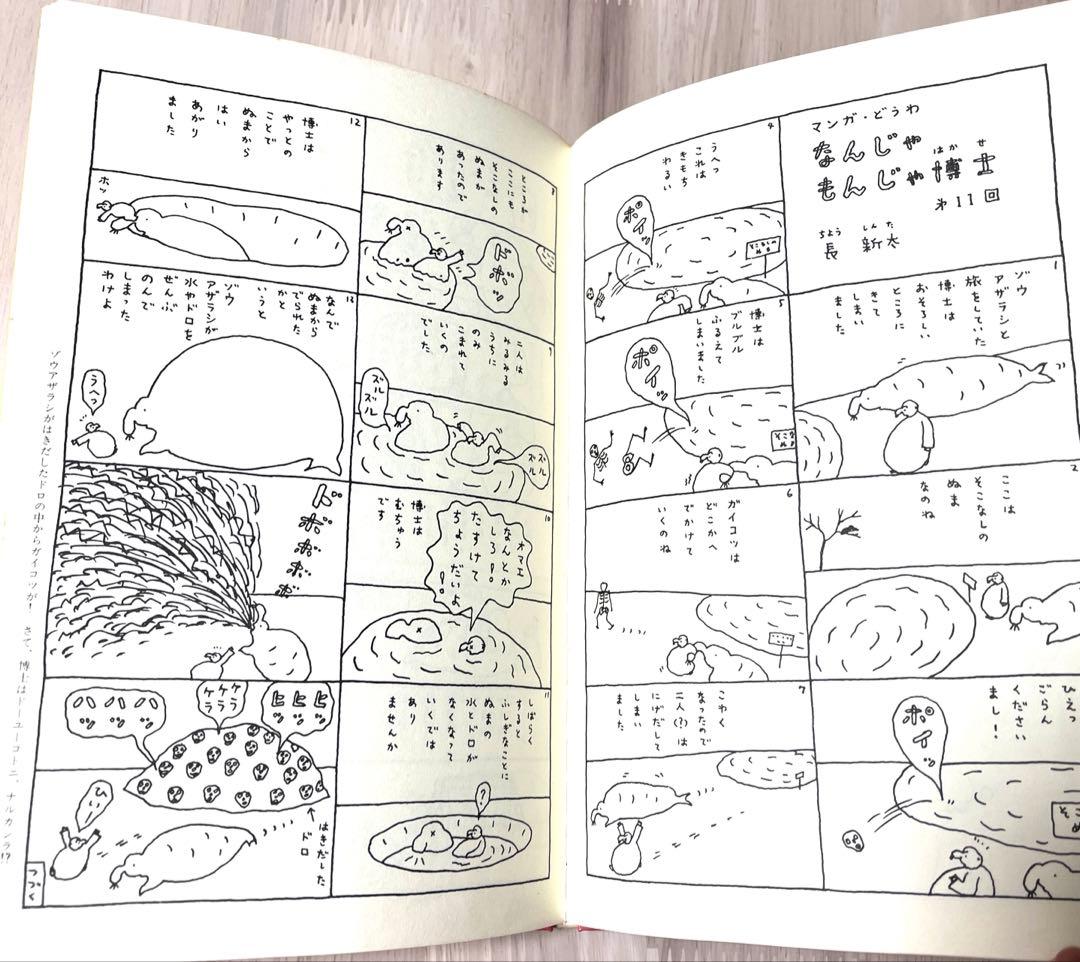 マンガ・どうわ
なんじゃ
もんじゃ博士
はか せ
第11回
ちょう しん た
長 新太
1
ゾウ
アザラシと
旅をしていた
博士は
おそろしい
ところに
きて
しまい
ました
2
ここは
そこなしの
ぬま
なのね
ひえっ
ごらん
ください
まし！
ポイッ
4
うへっ
これは
きもち
わるい
ポイッ
そこなしの
ぬま
5
博士は
ブルブル
ふるえて
しまいました
ポイッ
6
ガイコツは
どこかへ
でかけて
いくのね
7
こわく
なったので
二人(?)は
にげだして
しまい
ました
8
ところが
ここにも
そこなしの
ぬまが
あったので
あります
ドボッ
9
二人は
みるみる
うちに
のみ
こまれて
いくの
でした
ズルズル
ズルズル
10
オマエ
なんとか
しろ！
たすけて
ちょうだいよ！
博士は
むちゅう
です
11
しばらく
すると
ふしぎなことに
ぬまの
水とドロが
なくなって
いくでは
あり
ませんか
?
12
博士は
やっとの
ことで
ぬまから
はい
あがり
ました
ホッ
13
なんで
ぬまから
でられた
かと
いうと
ゾウ
アザラシが
水やドロを
ぜんぶ
のんで
しまった
わけよ
うへっ
ドボボボボ
ヒヒヒッッッ
ケラケラ
ハハハッッッ
ひいっ
はきだした
ドロ
つづく
ゾウアザラシがはきだしたドロの中からガイコツが！ さて、博士はドーユーコトニ、ナルカシラ!?